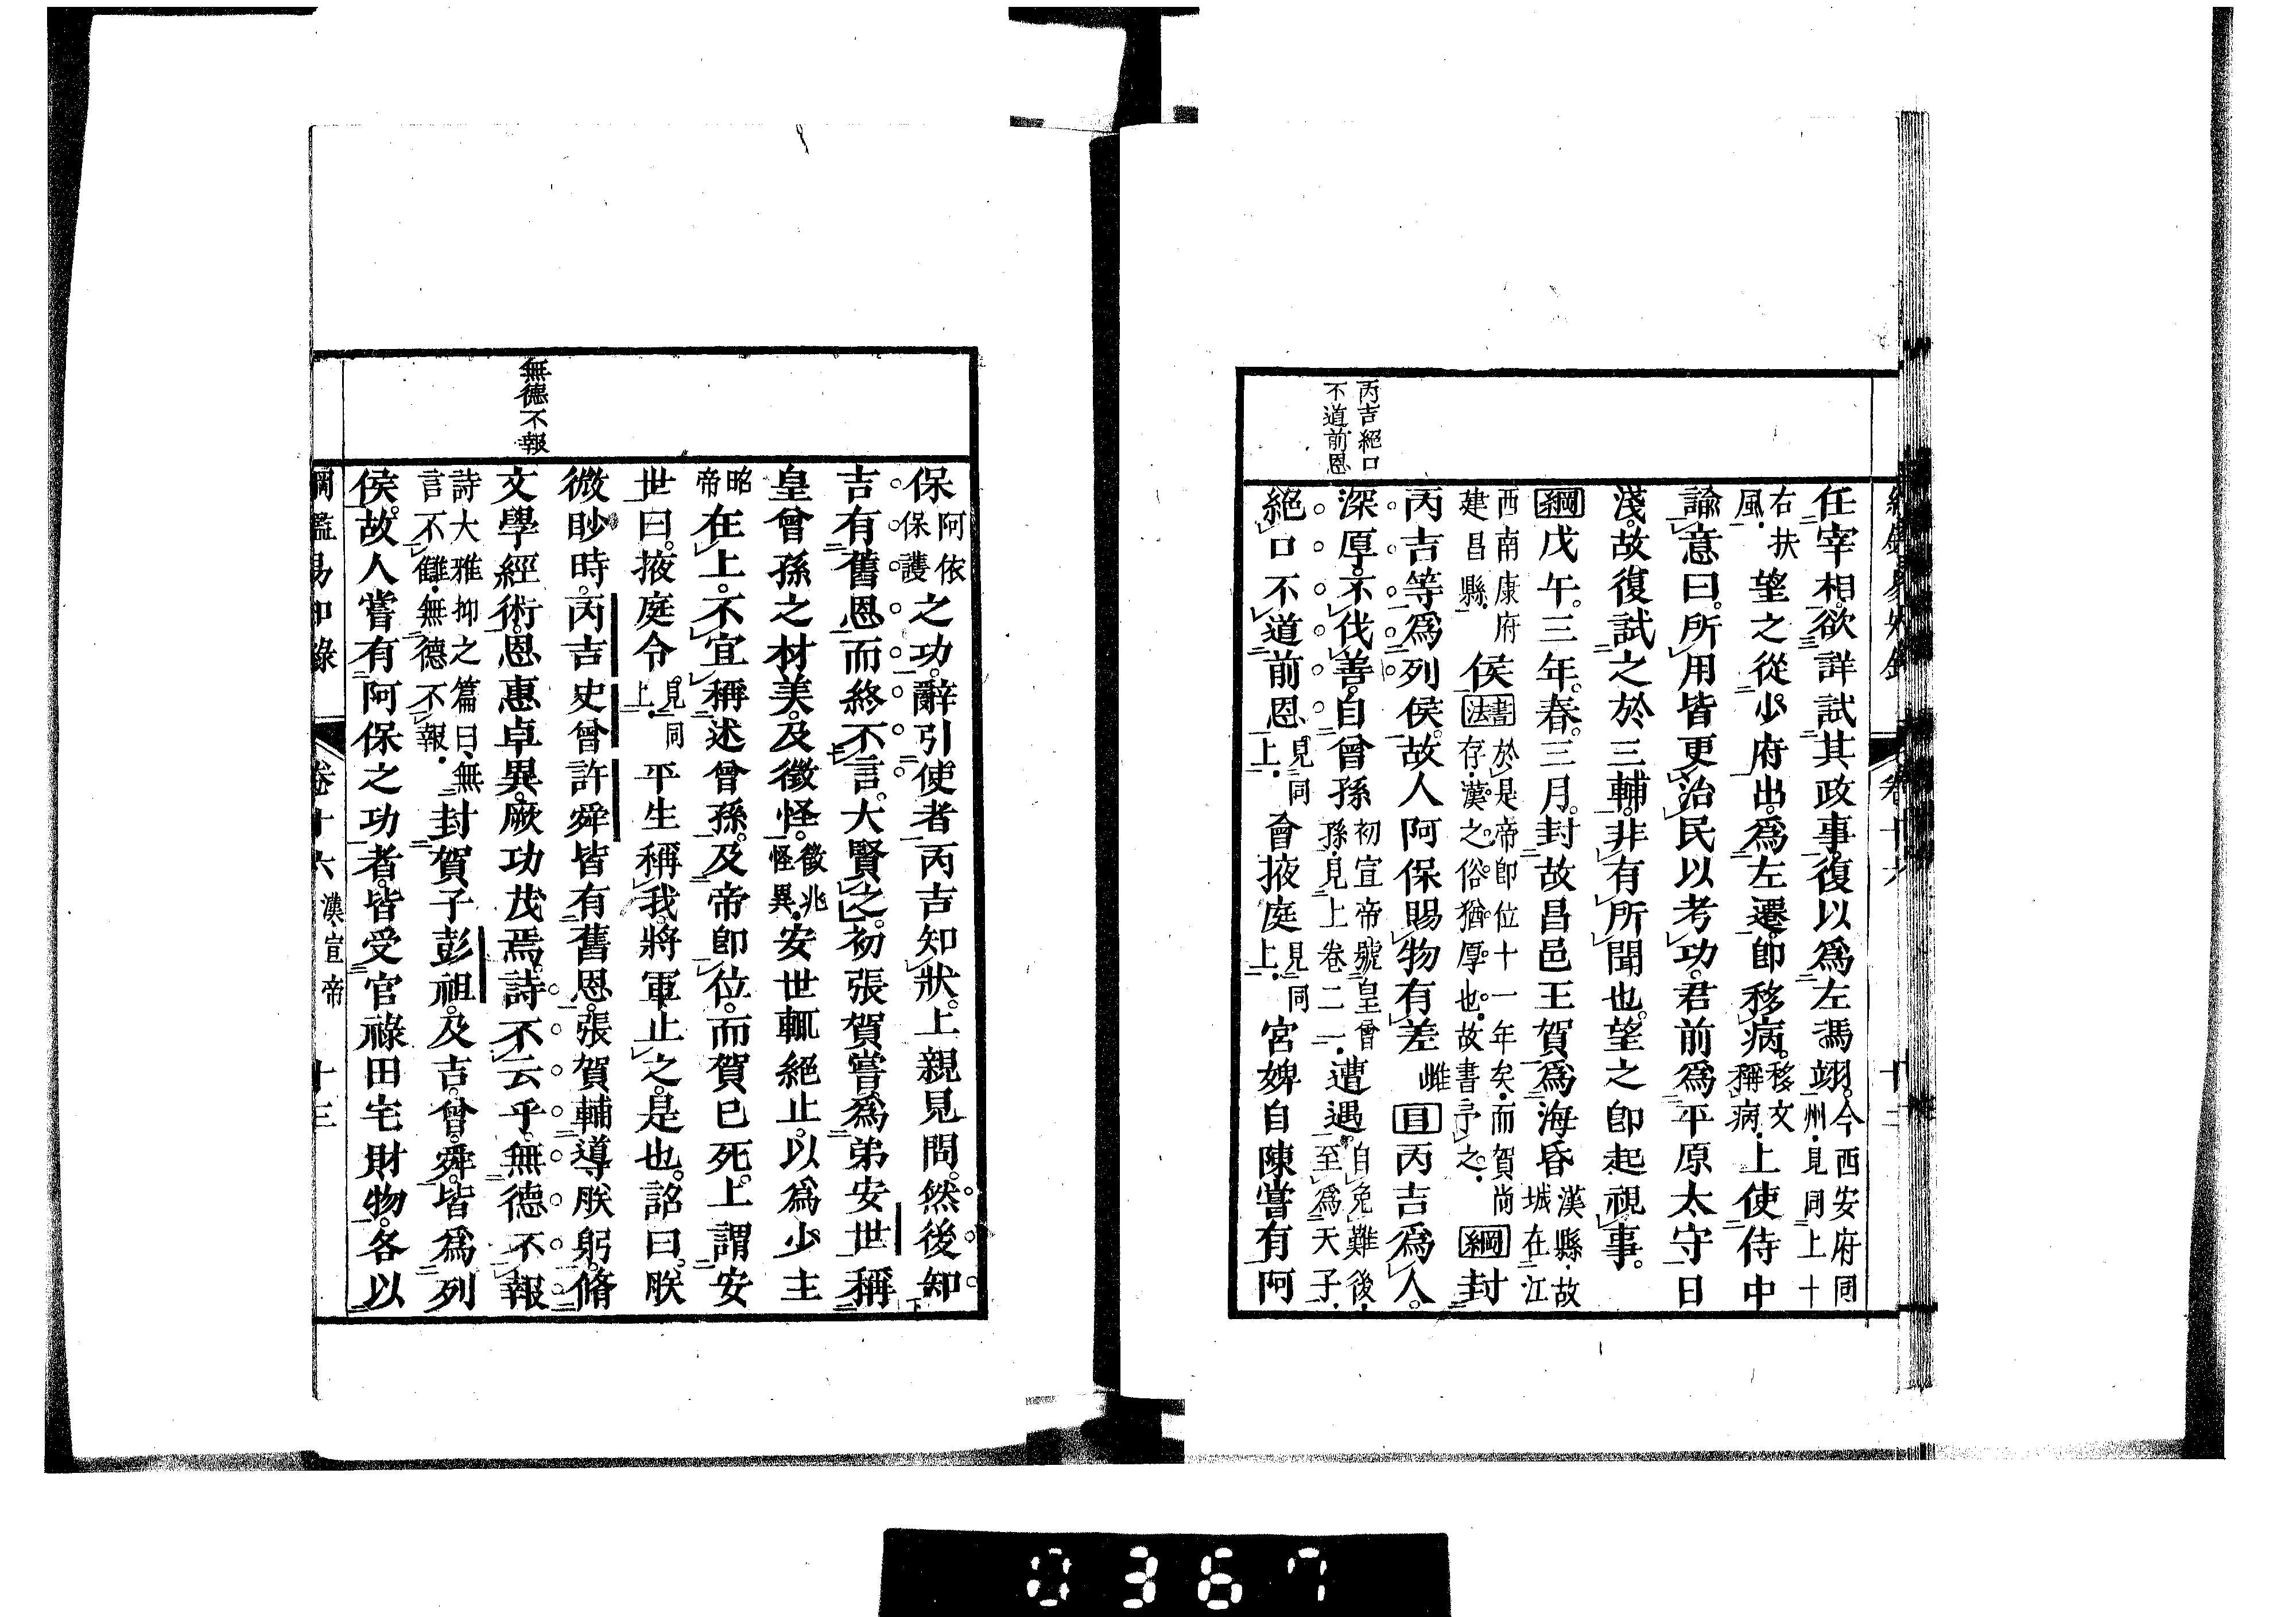 任宰相。欲詳試其政事。復以爲左馮翊。今西安府同州。見同上十
右扶風。望之從少府出。爲左遷。卽移病。移文稱病。上使侍中
諭意曰。所用皆更治民以考功。君前爲平原太守日
淺。故復試之於三輔。非有所聞也。望之卽起視事。
綱戊午。三年。春。三月。封故昌邑王賀爲海昏漢縣。故城在江
西南康府建昌縣。侯書法於是帝卽位十一年矣。而賀尚存。漢之俗猶厚也。故書予之。綱封
丙吉等爲列侯。故人阿保賜物有差雌目丙吉爲人。
深厚。不伐善。自曾孫初宣帝號皇曾孫。見上卷二一。遭遇。自免難後。至爲天子。
絕口不道前恩。見同上。會掖庭見同上。宮婢自陳嘗有阿
丙吉絕口不道前恩
卷十六
保阿依保護之功。辭引使者丙吉知狀。上親見問。然後知
吉有舊恩。而終不言。大賢之。初張賀嘗爲弟安世稱
皇曾孫之材美。及徵怪。徵兆怪異。安世輒絕止。以爲少主
昭帝在上。不宜稱述曾孫。及帝卽位。而賀已死。上謂安
世曰。掖庭令見同上。平生稱我。將軍止之。是也。詔曰。朕
微眇時。丙吉史曾許舜皆有舊恩。張賀輔導朕躬。脩
文學經術。恩惠卓異。厥功茂焉。詩不云乎。無德不報
詩大雅抑之篇曰。無言不讎。無德不報。封賀子彭祖。及吉。曾。舜。皆爲列
侯。故人嘗有阿保之功者。皆受官祿田宅財物。各以
無德不報
綱鑑易知錄 卷十六 漢宣帝 十三
0367